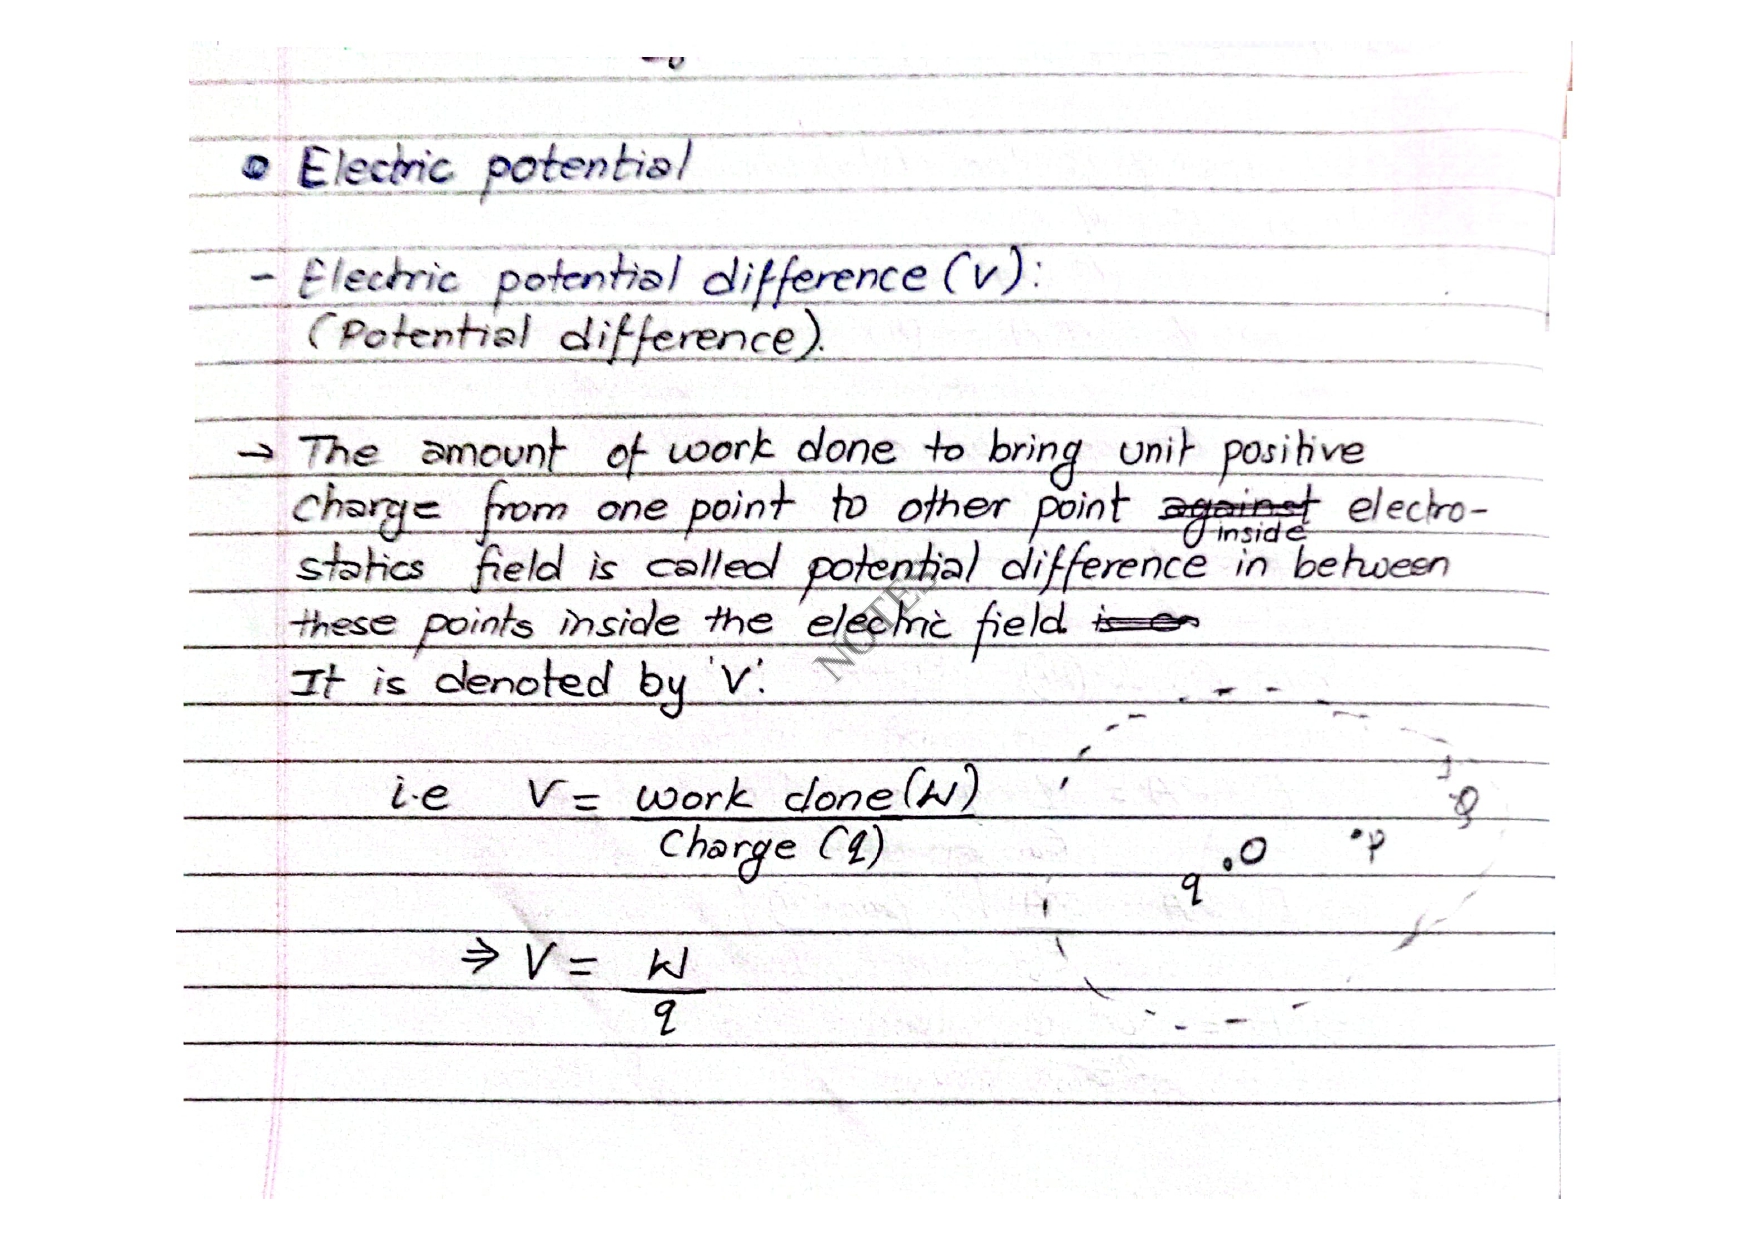 Electric potential
- Electric potential difference (V):
(Potential difference).
→ The amount of work done to bring unit positive
charge from one point to other point against electro-
inside
statics field is called potential difference in between
these points inside the electric field
It is denoted by 'V'.
i.e V = work done (W)
Charge (q)
⇒ V = W
q
Q
.O
.P
q
NOTES